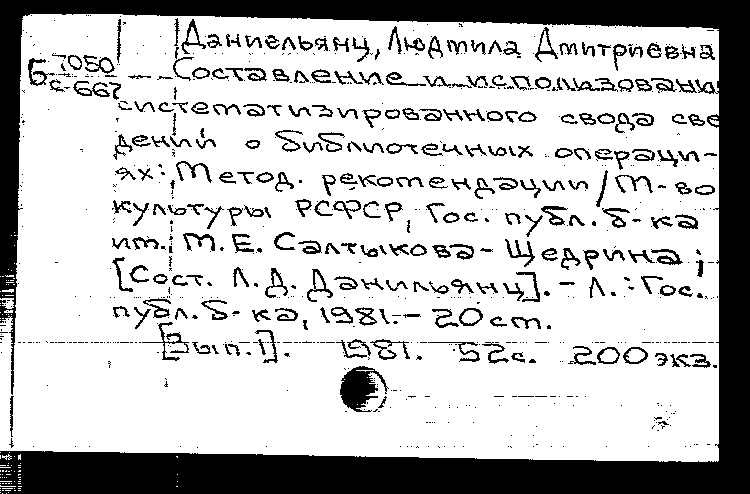 Даниельянц, Людмила Дмитриевна
Б 7050
с-667
Составление и использовани
систематизированного свода све
дений о библиотечных операци-
ях: Метод. рекомендации / М-во
культуры РСФСР, Гос. публ. б-ка
им. М.Е. Салтыкова-Щедрина ;
[Сост. Л.Д. Данильянц]. – Л. : Гос.
публ. б-ка, 1981. – 20 см.
[Вып. 1]. 1981. 52с. 200 экз.